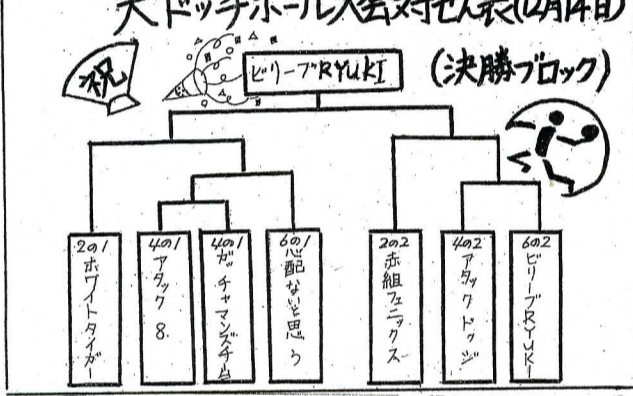 大ドッチボール大会対せん表(12月14日)
祝
ビリーブRYUKI
(決勝ブロック)
2の1 ホワイトタイガー
4の1 アタック8
4の1 ガッチャマンズチーム
6の1 心配ないと思う
2の2 赤組フェニックス
4の2 アタックドッジ
6の2 ビリーブRYUKI